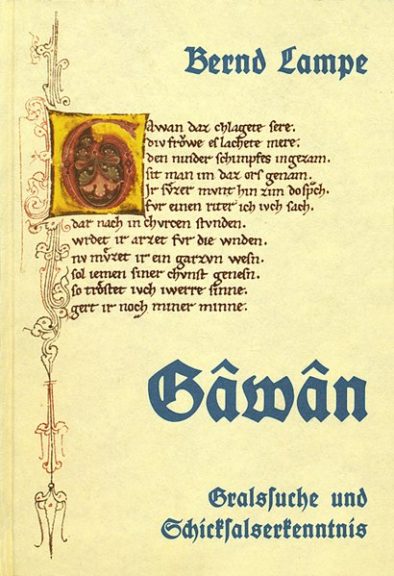 Bernd Lampe
Gawan daz chlagete sere.
div frŏwe es lachete mere.
den ninder schimpfes ingezam.
sit man im daz ors genam.
Ir sv̊zer mvnt hin zim dosp̄ch.
fvr einen riter ich ivch sach.
dar nach in chvrcen stvnden.
wrdet ir arzet fvr die wnden.
nv mv̊zet ir ein garzvn wesn.
sol iemen siner chvnst genesn.
so trŏstet ivch iwerre sinne.
gert ir noch miner minne.
Gâwân
Gralssuche und
Schicksalserkenntnis